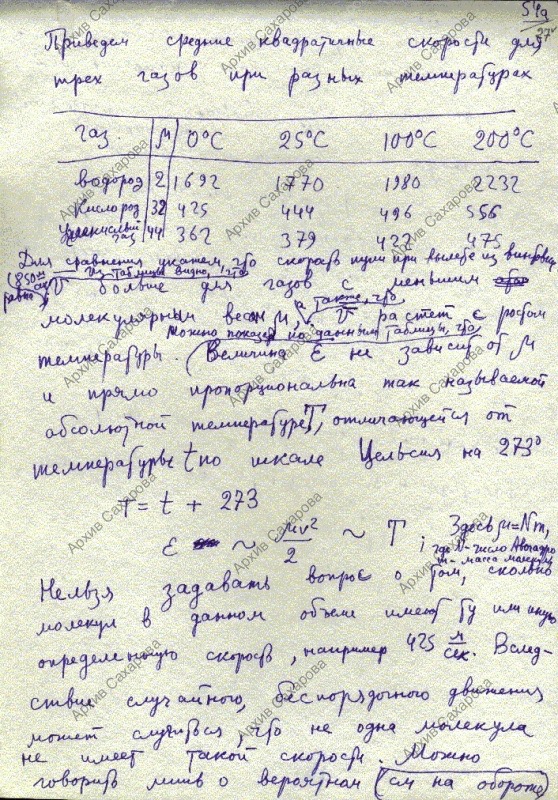 54а
27
Приведем средние квадратичные скорости для
трех газов при разных температурах
газ | М | 0°С 25°С 100°С 200°С
водород 2 1692 1770 1980 2232
кислород 32 425 444 496 556
Углекислый газ 44 362 379 422 475
Для сравнения укажем, что скорость пули при вылете из винтовки
(850 м/сек
равно)
Из таблицы видно, что
V больше для газов с меньшим
молекулярным весом М, а также, что V растет с ростом
температуры. Можно показать по данным таблицы, что
(Величина ε не зависит от М
и прямо пропорциональна так называемой
абсолютной температуре Т, отличающейся от
температуры t по шкале Цельсия на 273°
T = t + 273
ε ~ μv²/2 ~ T; Здесь μ=Nm,
где N - число Авогадро
m - масса молекулы
Нельзя задавать вопрос о том, сколько
молекул в данном объеме имеют ту или иную
определенную скорость, например 425 м/сек. Вслед-
ствие случайного, беспорядочного движения
может случиться, что не одна молекула
не имеет такой скорости. Можно
говорить лишь о вероятном (см на обороте)
Архив Сахарова